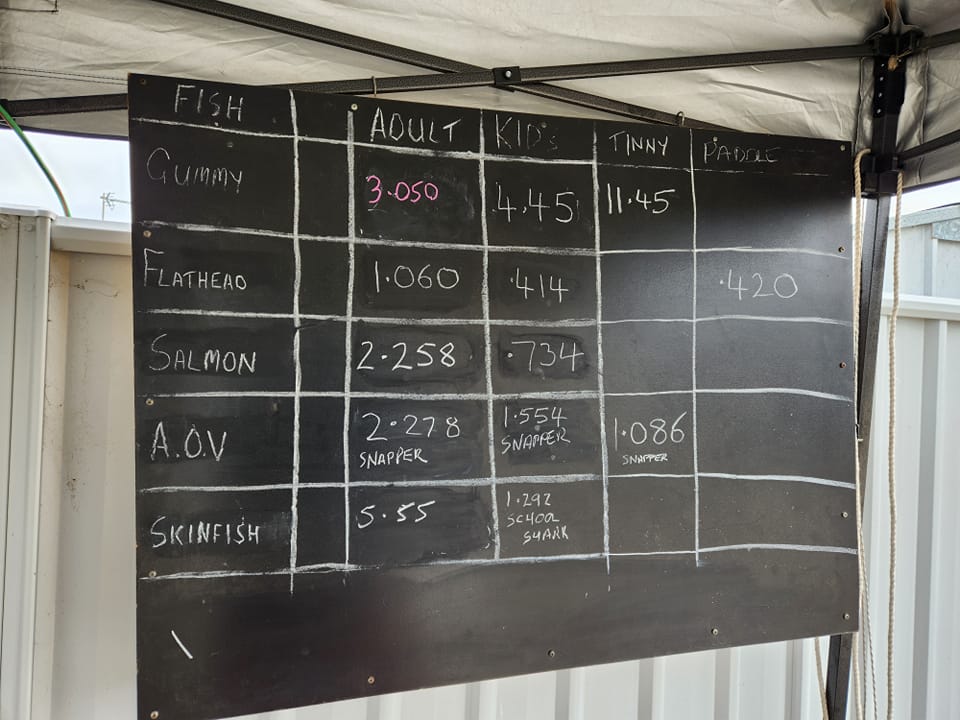 FISH ADULT KID's TINNY PADDLE
GUMMY 3.050 4.45 11.45
FLATHEAD 1.060 .414 .420
SALMON 2.258 .734
A.O.V 2.278 1.554 1.086
SNAPPER SNAPPER SNAPPER
SKINFISH 5.55 1.292
SCHOOL
SHARK